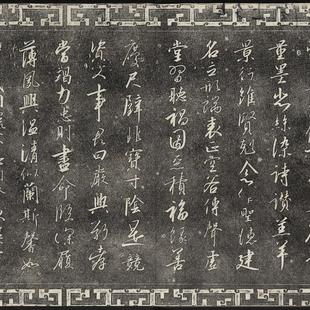 量墨悲絲染詩讚羔羊
景行維賢剋念作聖德建
名立形端表正空谷傳聲虛
堂習聽禍因惡積福緣善
慶尺璧非寶寸陰是競
資父事君曰嚴與敬孝
當竭力忠則盡命臨深履
薄夙興溫凊似蘭斯馨如